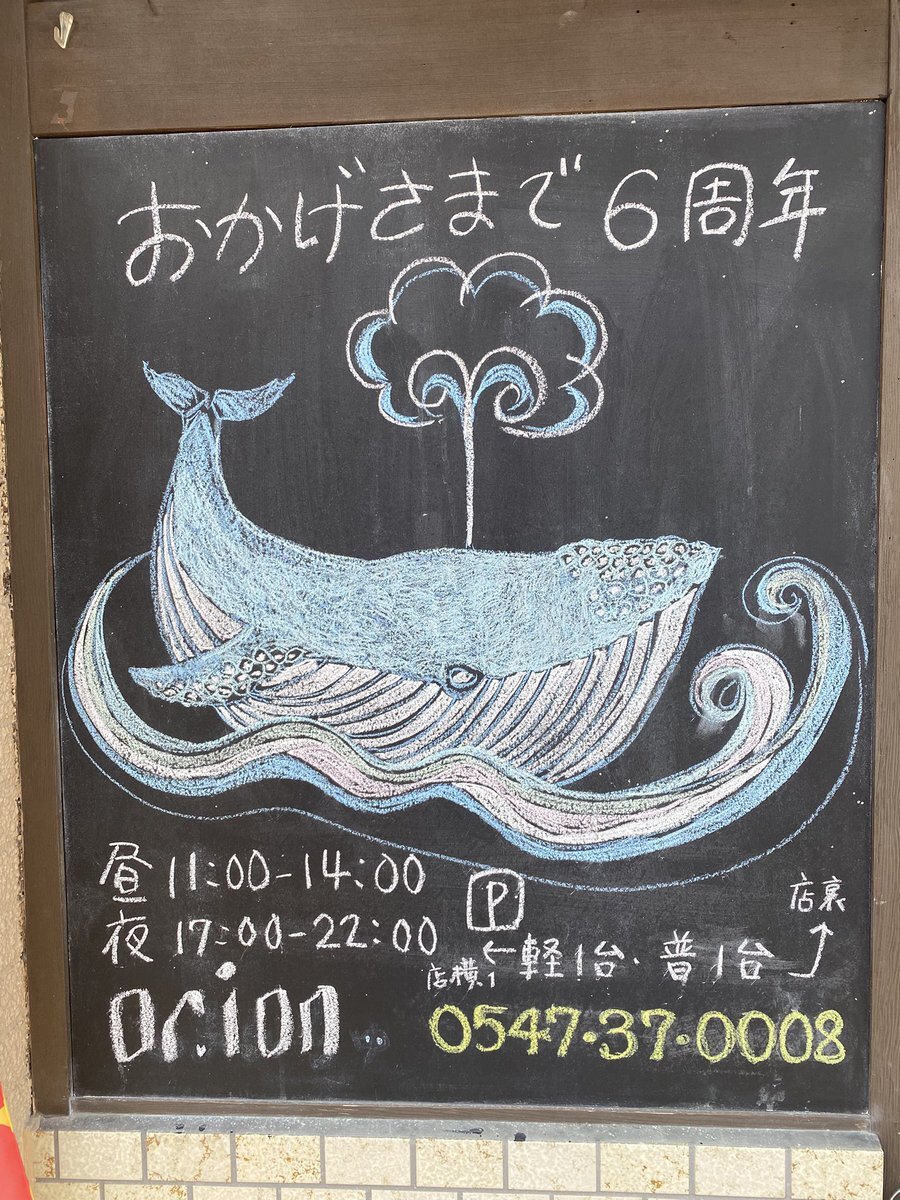 おかげさまで6周年
昼 11:00-14:00
夜 17:00-22:00
P
店裏
店横 ← 軽1台・普1台
orion
0547・37・0008